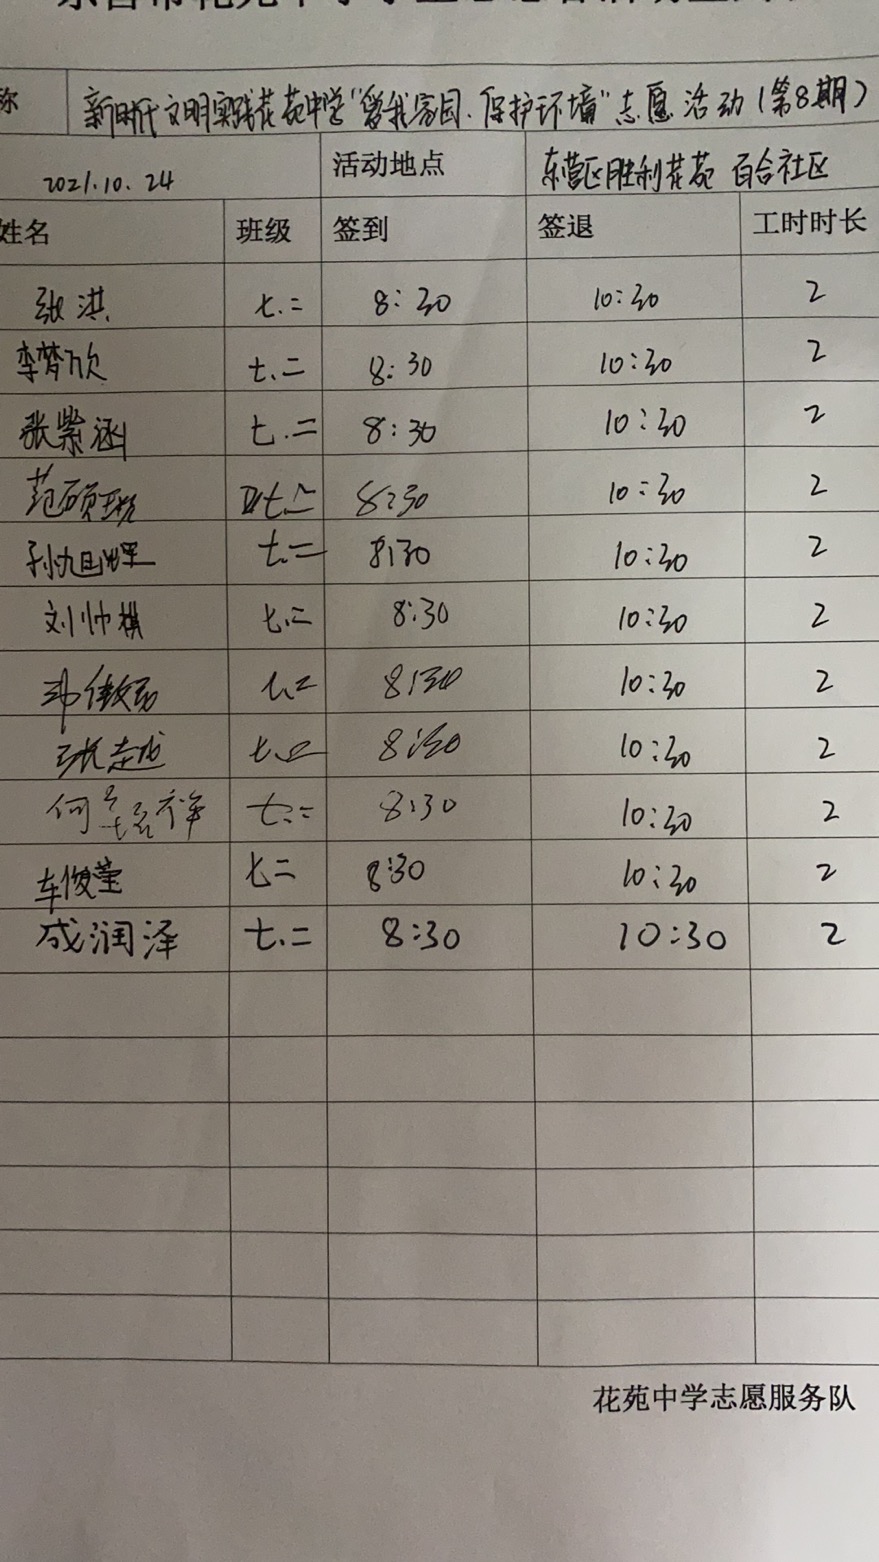 称 新时代文明实践花苑中学“爱我家园·保护环境”志愿活动(第8期)
2021.10.24 活动地点 东营区胜利花苑 百合社区
姓名 班级 签到 签退 工时时长
张洪 七.二 8:30 10:30 2
李梦欣 七.二 8:30 10:30 2
张紫涵 七.二 8:30 10:30 2
范硕 七二 8:30 10:30 2
孙旭 七.二 8:30 10:30 2
刘帅棋 七.二 8:30 10:30 2
七.二 8:30 10:30 2
张 七.二 8:30 10:30 2
何 祥 七.二 8:30 10:30 2
车俊莹 七二 8:30 10:30 2
成润泽 七.二 8:30 10:30 2
花苑中学志愿服务队